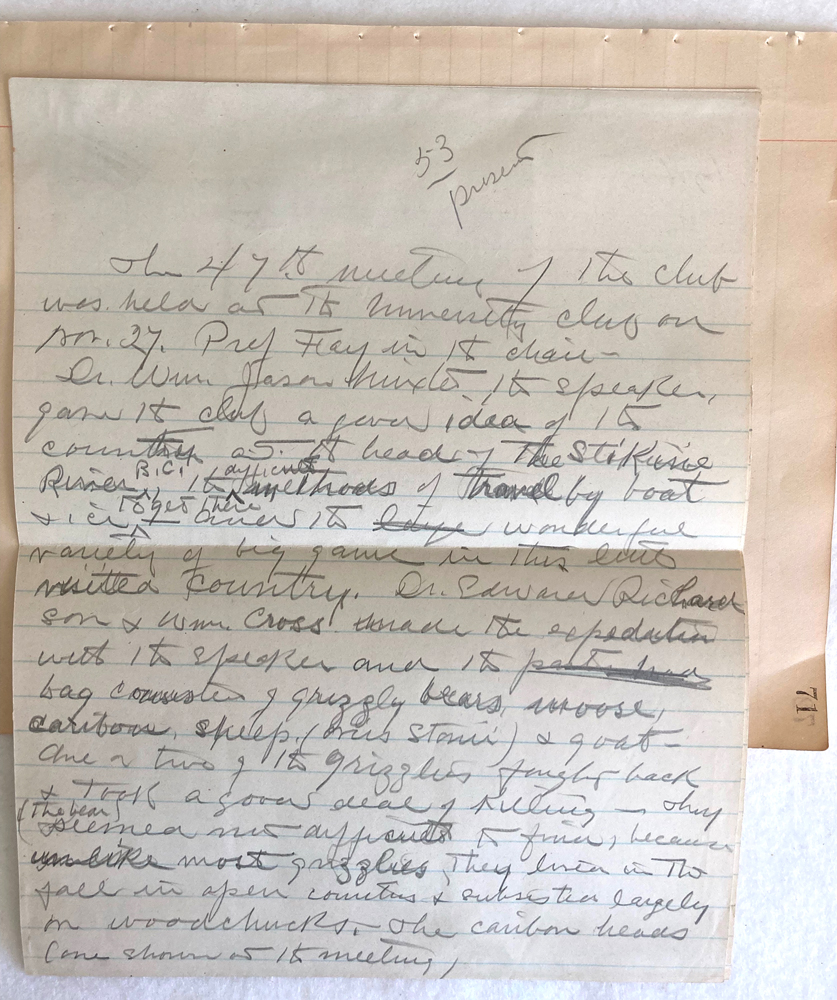 53
present
The 47th meeting of the club
was held at the University club on
Nov. 27. Prof Fay in the chair -
Dr. Wm. Jason Mixter, the speaker,
gave the club a good idea of the
country at the head of The Stikine
River, B.C., the difficult methods of travel by boat
& to get there and the large wonderful
variety of big game in this little
visited country. Dr. Edward Richard
son & Wm. Cross made the expedition
with the speaker and the party had
bag consisted of grizzly bears, moose,
caribou, sheep, (ovis Stonii) & goat -
One or two of the grizzlies fought back
& took a good deal of killing - They
(the bear) seemed not difficult to find, because
unlike most grizzlies they lived in the
fall in open country & subsisted largely
on woodchucks. The caribou heads
(one shown at the meeting)
71